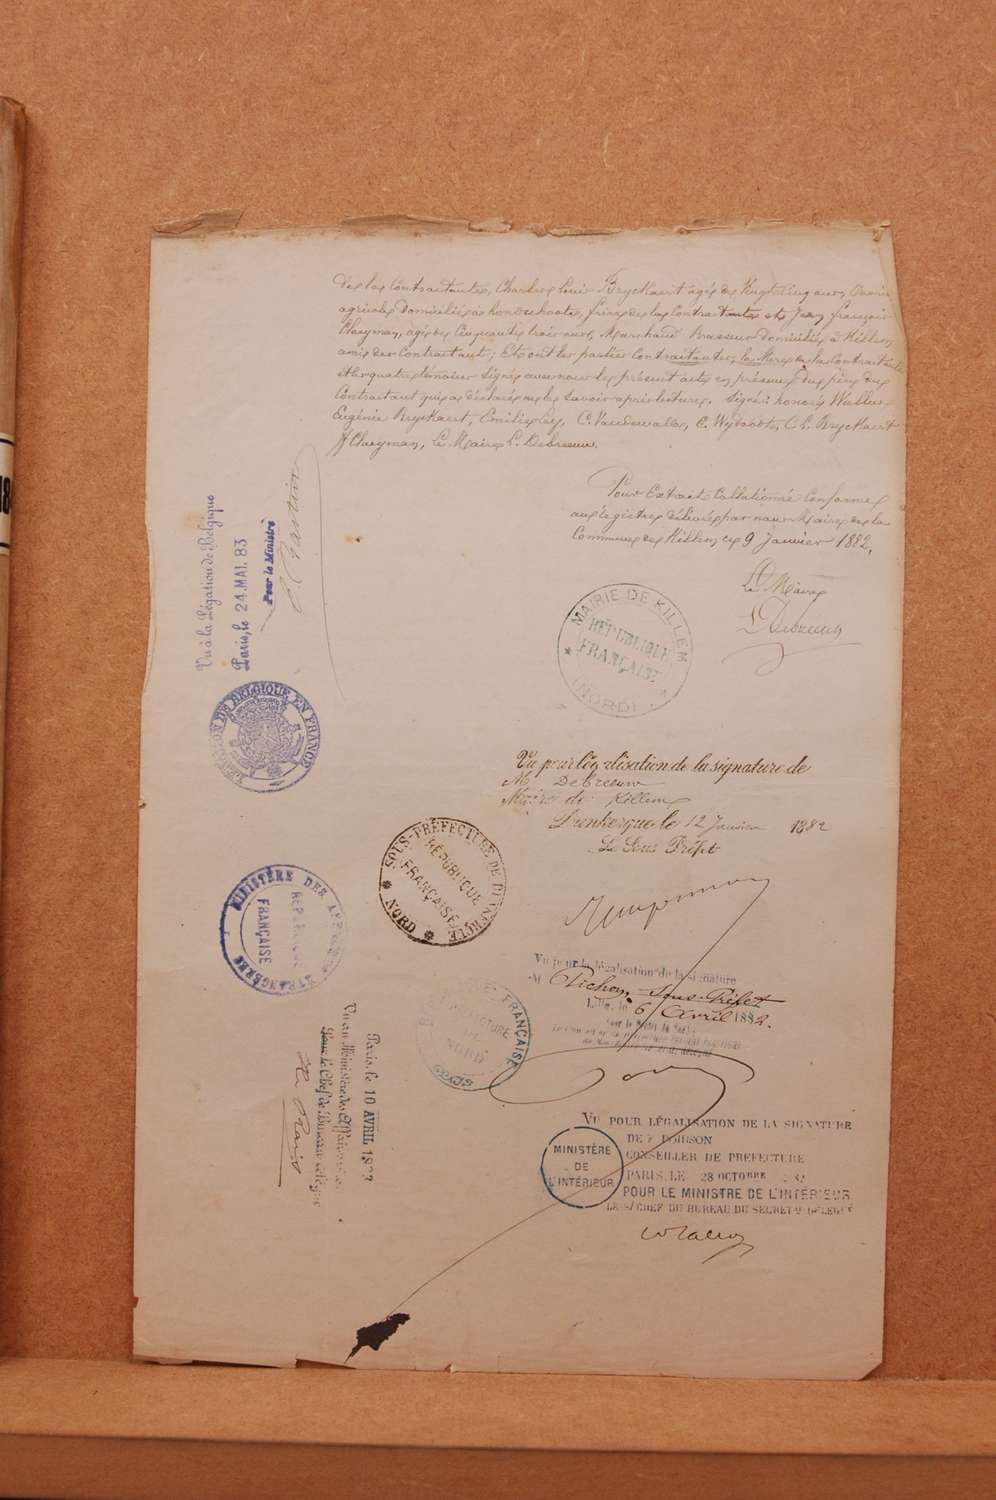 de la Contractante, Charles Louis Bryckaert agé de Vingt Cinq ans, Ouvrier
agricole domicilié à hondschoote, frère de la Contractante et Jean françois
Claeyman, agé de Cinquante trois ans, Marchand Brasseur domicilié à Killem
ami der Contractant; Et ont les parties Contractantes, la Mère de la Contractante
et les quatre témoins signé avec nous le présent acte en présence du père du
Contractant qui a déclaré ne le savoir après lecture. Signé: honoré
Eugénie Bryckaert, Emilie Ley, C. Vandewalle, C. Wydooot, C. L. Bryckaert
J. Claeyman, Le Maire L. Debreeuw.
Pour Extrait Collationné Conforme
au registre délivré par nous Maire de la
Commune de Killem ce 9 Janvier 1882,
Le Maire
L Debreeuw
MAIRIE DE KILLEM
RÉPUBLIQUE
FRANÇAISE
(NORD)
Vu à la Légation de Belgique
Paris, le 24.MAI.83
Pour le Ministre
LÉGATION DE BELGIQUE EN FRANCE
Vu pour légalisation de la signature de
M Debreeuw
Maire de Killem
Dunkerque le 12 Janvier 1882
Le Sous Préfet
SOUS-PRÉFECTURE DE DUNKERQUE
RÉPUBLIQUE
FRANÇAISE
NORD
MINISTÈRE DES AFFAIRES ÉTRANGÈRES
RÉPUBLIQUE
FRANÇAISE
Vu pour la légalisation de la signature
M Plichon Sous-Préfet
Lille, le 6 Avril 1882.
RÉPUBLIQUE FRANÇAISE
PRÉFECTURE
DU
NORD
Paris, le 10 AVRIL 1883
Vu au Ministère des Affaires
Pour le Chef de Bureau délégué
VU POUR LÉGALISATION DE LA SIGNATURE
DE POISSON
CONSEILLER DE PREFECTURE
PARIS, LE 28 OCTOBRE 82
POUR LE MINISTRE DE L'INTÉRIEUR
LE S/CHEF DU BUREAU DU SECRET<sup>AT</sup> DÉLÉGUÉ
MINISTÈRE
DE
L'INTÉRIEUR
18